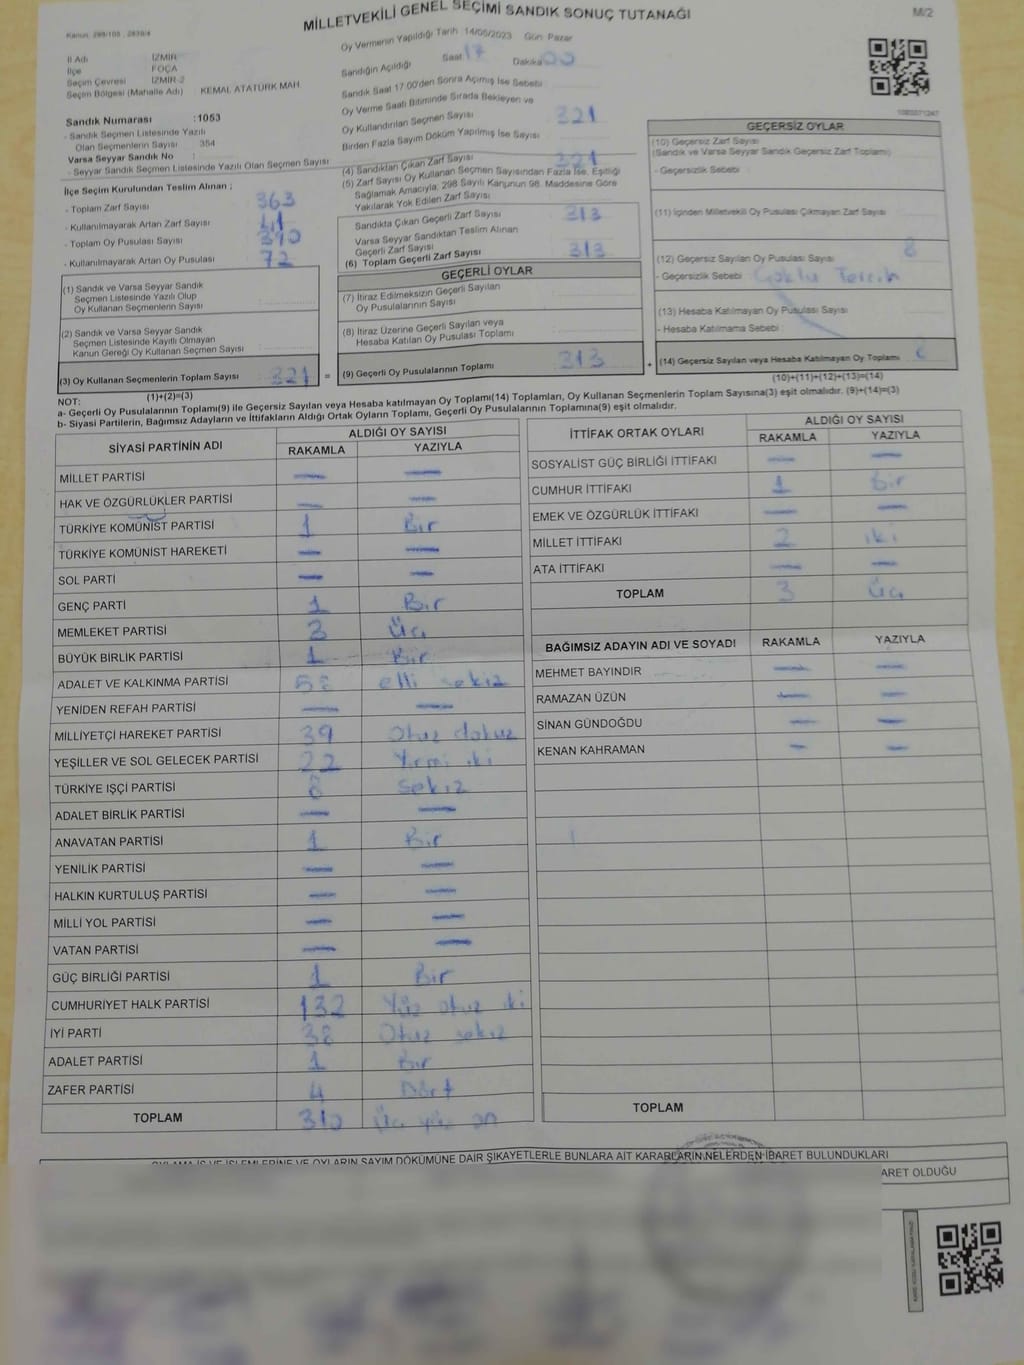 MİLLETVEKİLİ GENEL SEÇİMİ SANDIK SONUÇ TUTANAĞI
M/2
Oy Vermenin Yapıldığı Tarih 14/05/2023 Gün: Pazar
İl Adı İZMİR
İlçe FOÇA
Seçim Çevresi İZMİR-2
Seçim Bölgesi (Mahalle Adı) KEMAL ATATÜRK MAH
Sandığın Açıldığı Saat 17 Dakika 00
Sandık Saat 17.00'den Sonra Açımış İse Sebebi
Oy Verme Saati Bitiminde Sırada Bekleyen ve
Oy Kullandırılan Seçmen Sayısı 321
Birden Fazla Sayım Döküm Yapılmış İse Sayısı
Sandık Numarası :1053
- Sandık Seçmen Listesinde Yazılı
Olan Seçmenlerin Sayısı 354
Varsa Seyyar Sandık No :
- Seyyar Sandık Seçmen Listesinde Yazılı Olan Seçmen Sayısı
İlçe Seçim Kurulundan Teslim Alınan ;
- Toplam Zarf Sayısı 363
- Kullanılmayarak Artan Zarf Sayısı
- Toplam Oy Pusulası Sayısı
- Kullanılmayarak Artan Oy Pusulası 72
(1) Sandık ve Varsa Seyyar Sandık
Seçmen Listesinde Yazılı Olup
Oy Kullanan Seçmenlerin Sayısı
(2) Sandık ve Varsa Seyyar Sandık
Seçmen Listesinde Kayıtlı Olmayan
Kanun Gereği Oy Kullanan Seçmen Sayısı
(3) Oy Kullanan Seçmenlerin Toplam Sayısı 321
(1)+(2)=(3)
(4) Sandıktan Çıkan Zarf Sayısı 321
(5) Zarf Sayısı Oy Kullanan Seçmen Sayısından Fazla İse, Eşitliği
Sağlamak Amacıyla, 298 Sayılı Kanunun 98. Maddesine Göre
Yakılarak Yok Edilen Zarf Sayısı
Sandıkta Çıkan Geçerli Zarf Sayısı 313
Varsa Seyyar Sandıktan Teslim Alınan
Geçerli Zarf Sayısı
(6) Toplam Geçerli Zarf Sayısı 313
GEÇERLİ OYLAR
(7) İtiraz Edilmeksizin Geçerli Sayılan
Oy Pusulalarının Sayısı
(8) İtiraz Üzerine Geçerli Sayılan veya
Hesaba Katılan Oy Pusulası Toplamı
= (9) Geçerli Oy Pusulalarının Toplamı 313 +
GEÇERSİZ OYLAR
(10) Geçersiz Zarf Sayısı
(Sandık ve Varsa Seyyar Sandık Geçersiz Zarf Toplamı)
- Geçersizlik Sebebi :
(11) İçinden Milletvekili Oy Pusulası Çıkmayan Zarf Sayısı
(12) Geçersiz Sayılan Oy Pusulası Sayısı 8
- Geçersizlik Sebebi Çoklu Tercih
(13) Hesaba Katılmayan Oy Pusulası Sayısı
- Hesaba Katılmama Sebebi
(14) Geçersiz Sayılan veya Hesaba Katılmayan Oy Toplamı
(10)+(11)+(12)+(13)=(14)
NOT:
a- Geçerli Oy Pusulalarının Toplamı(9) ile Geçersiz Sayılan veya Hesaba katılmayan Oy Toplamı(14) Toplamları, Oy Kullanan Seçmenlerin Toplam Sayısına(3) eşit olmalıdır. (9)+(14)=(3)
b- Siyasi Partilerin, Bağımsız Adayların ve İttifakların Aldığı Ortak Oyların Toplamı, Geçerli Oy Pusulalarının Toplamına(9) eşit olmalıdır.
SİYASİ PARTİNİN ADI
ALDIĞI OY SAYISI
RAKAMLA YAZIYLA
MİLLET PARTİSİ — —
HAK VE ÖZGÜRLÜKLER PARTİSİ — —
TÜRKİYE KOMÜNİST PARTİSİ 1 Bir
TÜRKİYE KOMÜNİST HAREKETİ — —
SOL PARTİ — —
GENÇ PARTİ 1 Bir
MEMLEKET PARTİSİ 3 Üç
BÜYÜK BİRLİK PARTİSİ 1 Bir
ADALET VE KALKINMA PARTİSİ 58 elli sekiz
YENİDEN REFAH PARTİSİ — —
MİLLİYETÇİ HAREKET PARTİSİ 39 Otuz dokuz
YEŞİLLER VE SOL GELECEK PARTİSİ 22 Yirmi iki
TÜRKİYE İŞÇİ PARTİSİ 8 sekiz
ADALET BİRLİK PARTİSİ — —
ANAVATAN PARTİSİ 1 Bir
YENİLİK PARTİSİ — —
HALKIN KURTULUŞ PARTİSİ — —
MİLLİ YOL PARTİSİ — —
VATAN PARTİSİ — —
GÜÇ BİRLİĞİ PARTİSİ 1 Bir
CUMHURİYET HALK PARTİSİ 132 Yüz otuz iki
İYİ PARTİ 38 Otuz sekiz
ADALET PARTİSİ 1 Bir
ZAFER PARTİSİ 4 Dört
TOPLAM 310 Üç yüz on
İTTİFAK ORTAK OYLARI
ALDIĞI OY SAYISI
RAKAMLA YAZIYLA
SOSYALİST GÜÇ BİRLİĞİ İTTİFAKI — —
CUMHUR İTTİFAKI 1 Bir
EMEK VE ÖZGÜRLÜK İTTİFAKI — —
MİLLET İTTİFAKI 2 iki
ATA İTTİFAKI — —
TOPLAM 3 Üç
BAĞIMSIZ ADAYIN ADI VE SOYADI RAKAMLA YAZIYLA
MEHMET BAYINDIR — —
RAMAZAN ÜZÜN — —
SİNAN GÜNDOĞDU — —
KENAN KAHRAMAN — —
TOPLAM
OYLAMA İŞ VE İŞLEMLERİNE VE OYLARIN SAYIM DÖKÜMÜNE DAİR ŞİKAYETLERLE BUNLARA AİT KARARLARIN NELERDEN İBARET BULUNDUKLARI
ARET OLDUĞU